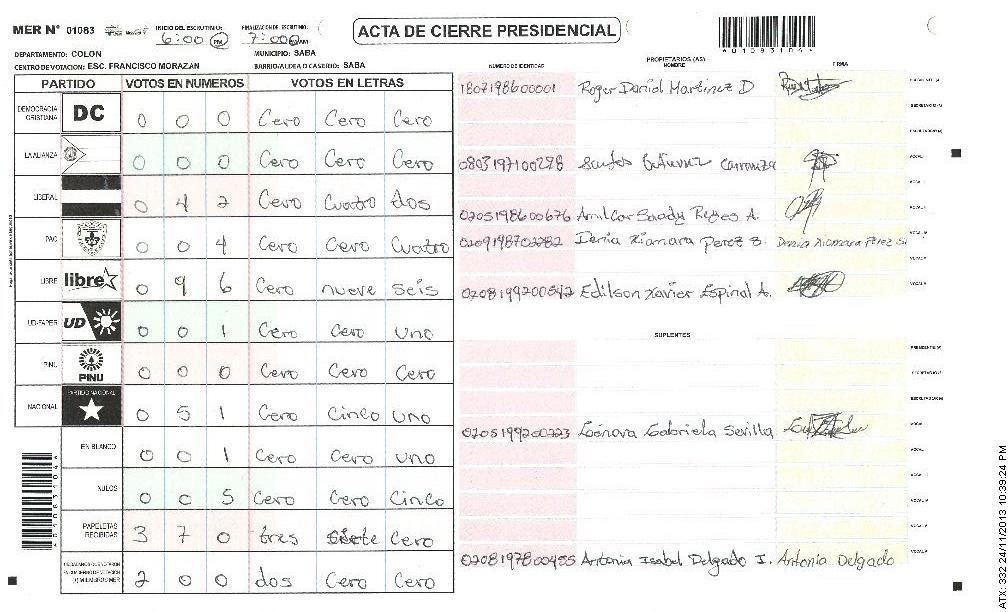 MER Nº 01083 INICIO DEL ESCRUTINIO: 6:00 PM FINALIZACION DEL ESCRUTINIO: 7:00 AM
ACTA DE CIERRE PRESIDENCIAL
*01083104*
DEPARTAMENTO: COLON MUNICIPIO: SABA
CENTRO DE VOTACION: ESC. FRANCISCO MORAZAN BARRIO/ALDEA O CASERIO: SABA
PARTIDO VOTOS EN NUMEROS VOTOS EN LETRAS
DEMOCRACIA CRISTIANA DC 0 0 0 Cero Cero Cero
LA ALIANZA 0 0 0 Cero Cero Cero
LIBERAL 0 4 2 Cero Cuatro dos
PAC 0 0 4 Cero Cero Cuatro
LIBRE libre 0 9 6 Cero nueve seis
UD-FAPER UD 0 0 1 Cero Cero uno
PINU PINU 0 0 0 Cero Cero Cero
NACIONAL PARTIDO NACIONAL 0 5 1 Cero Cinco uno
EN BLANCO 0 0 1 Cero Cero uno
NULOS 0 0 5 Cero Cero Cinco
PAPELETAS RECIBIDAS 3 7 0 tres siete Cero
2 0 0 dos Cero Cero
NUMERO DE IDENTIDAD PROPIETARIOS (AS) NOMBRE FIRMA
1807198600001 Roger Daniel Martinez D
0803197100278 Santos Gutierrez Carranza
0205198600676 Amilcar Saady Reyes A.
0209198702282 Denia Xiomara Perez S. Denia Xiomara Perez S
0208199200542 Edilson Xavier Espinal A.
SUPLENTES
0205199200223 Gabriela Sevilla
0208197800455 Antonia Isabel Delgado I. Antonia Delgado
ATX: 332 24/11/2013 10:39:24 PM